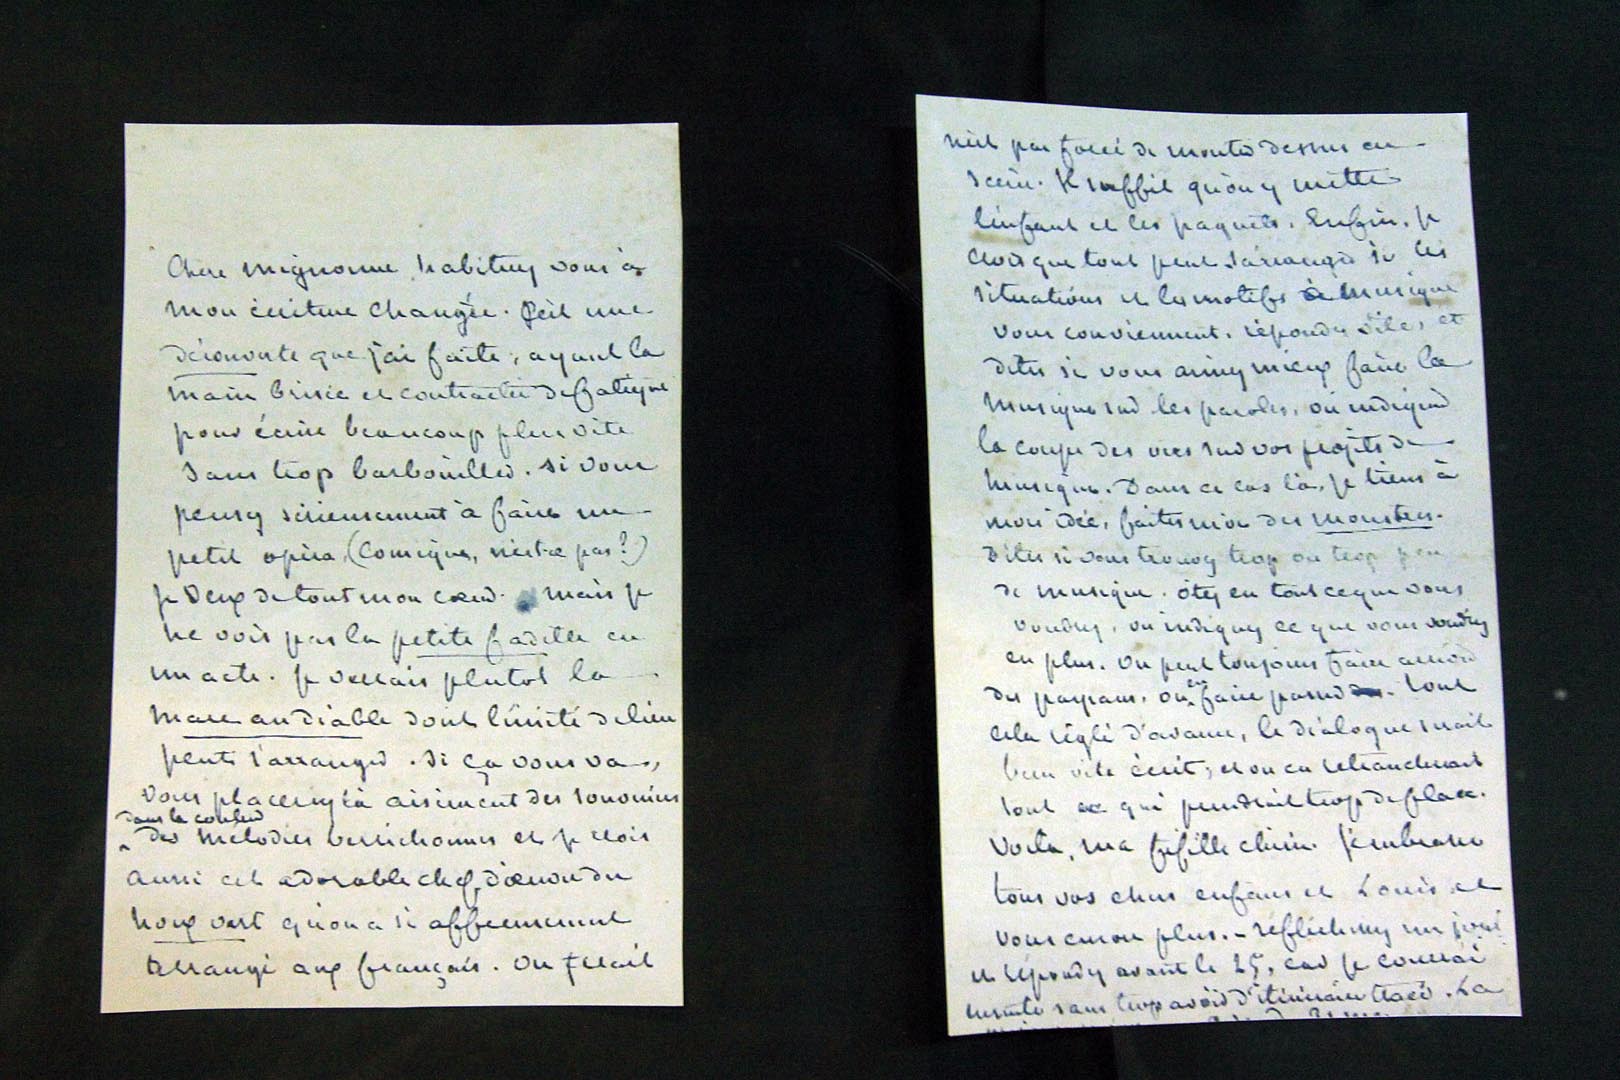 Chère mignonne, habituez vous à
mon écriture changée. C'est une
découverte que j'ai faite, ayant la
main brisée et contractée de fatigue
pour écrire beaucoup plus vite
sans trop barbouiller. Si vous
pensez sérieusement à faire un
petit opéra, (Comique, n'est ce pas?)
je veux de tout mon cœur. mais je
ne vois pas la petite fadette en
un acte. je verrais plutôt la
mare au diable dont l'unité de lieu
peut s'arranger. Si ça vous va,
vous placerez là aisément des
dans la couleur
des mélodies berrichonnes et je crois
aussi cet adorable chef d'œuvre du
houx vert qu'on a si affreusement
arrangé aux français. On
n'est pas forcé de monter dessus en
scène. Il suffit qu'on y mette
l'enfant et les paquets. Enfin, je
crois que tout peut s'arranger si les
situations et les motifs à musique
vous conviennent. répondez vite, et
dites si vous aimez mieux faire la
musique sur les paroles, ou indiquer
la coupe des vers sur vos projets de
musique. Dans ce cas là, je tiens à
mon idée, faites moi des monstres.
Dites si vous trouvez trop ou trop peu
de musique. ôtez en tout ce que vous
voudrez, ou indiquez ce que vous voudrez
en plus. On peut toujours faire
des paysans, ou en faire passer. tout
cela réglé d'avance, le dialogue serait
bien vite écrit, et on en retrancherait
tout ce qui prendrait trop de place.
Voila, ma fifille chérie. J'embrasse
tous vos chers enfans et Louis et
vous encore plus. – réfléchissez un jour
et répondez avant le 25, car je courrai
ensuite sans trop avoir d'itinéraire tracé. La